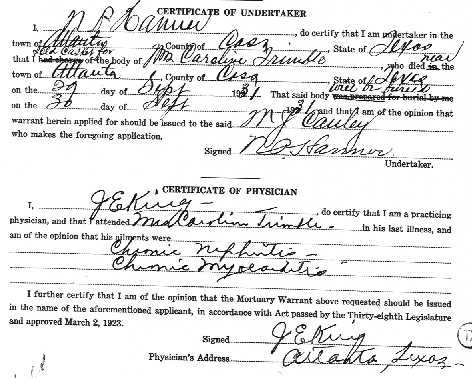 CERTIFICATE OF UNDERTAKER
I, N P Hanner, do certify that I am undertaker in the
town of Atlanta, County of Cass, State of Texas
Sold Casket for near
that I had charge of the body of Mrs Caroline Trimble who died in the
town of Atlanta, County of Cass, State of Texas
on the 29 day of Sept 1931. That said body was prepared for burial by me
on the 30 day of Sept 1931 and that I am of the opinion that
warrant herein applied for should be issued to the said M J Cauley
who makes the foregoing application.
Signed N P Hanner
Undertaker.
CERTIFICATE OF PHYSICIAN
I, J E King, do certify that I am a practicing
physician, and that I attended Mrs Carolin Trimble in his last illness, and
am of the opinion that his ailments were
Chronic Nephritis
Chronic Myocarditis
I further certify that I am of the opinion that the Mortuary Warrant above requested should be issued
in the name of the aforementioned applicant, in accordance with Act passed by the Thirty-eighth Legislature
and approved March 2, 1923.
Signed J E King
Physician's Address Atlanta, Texas